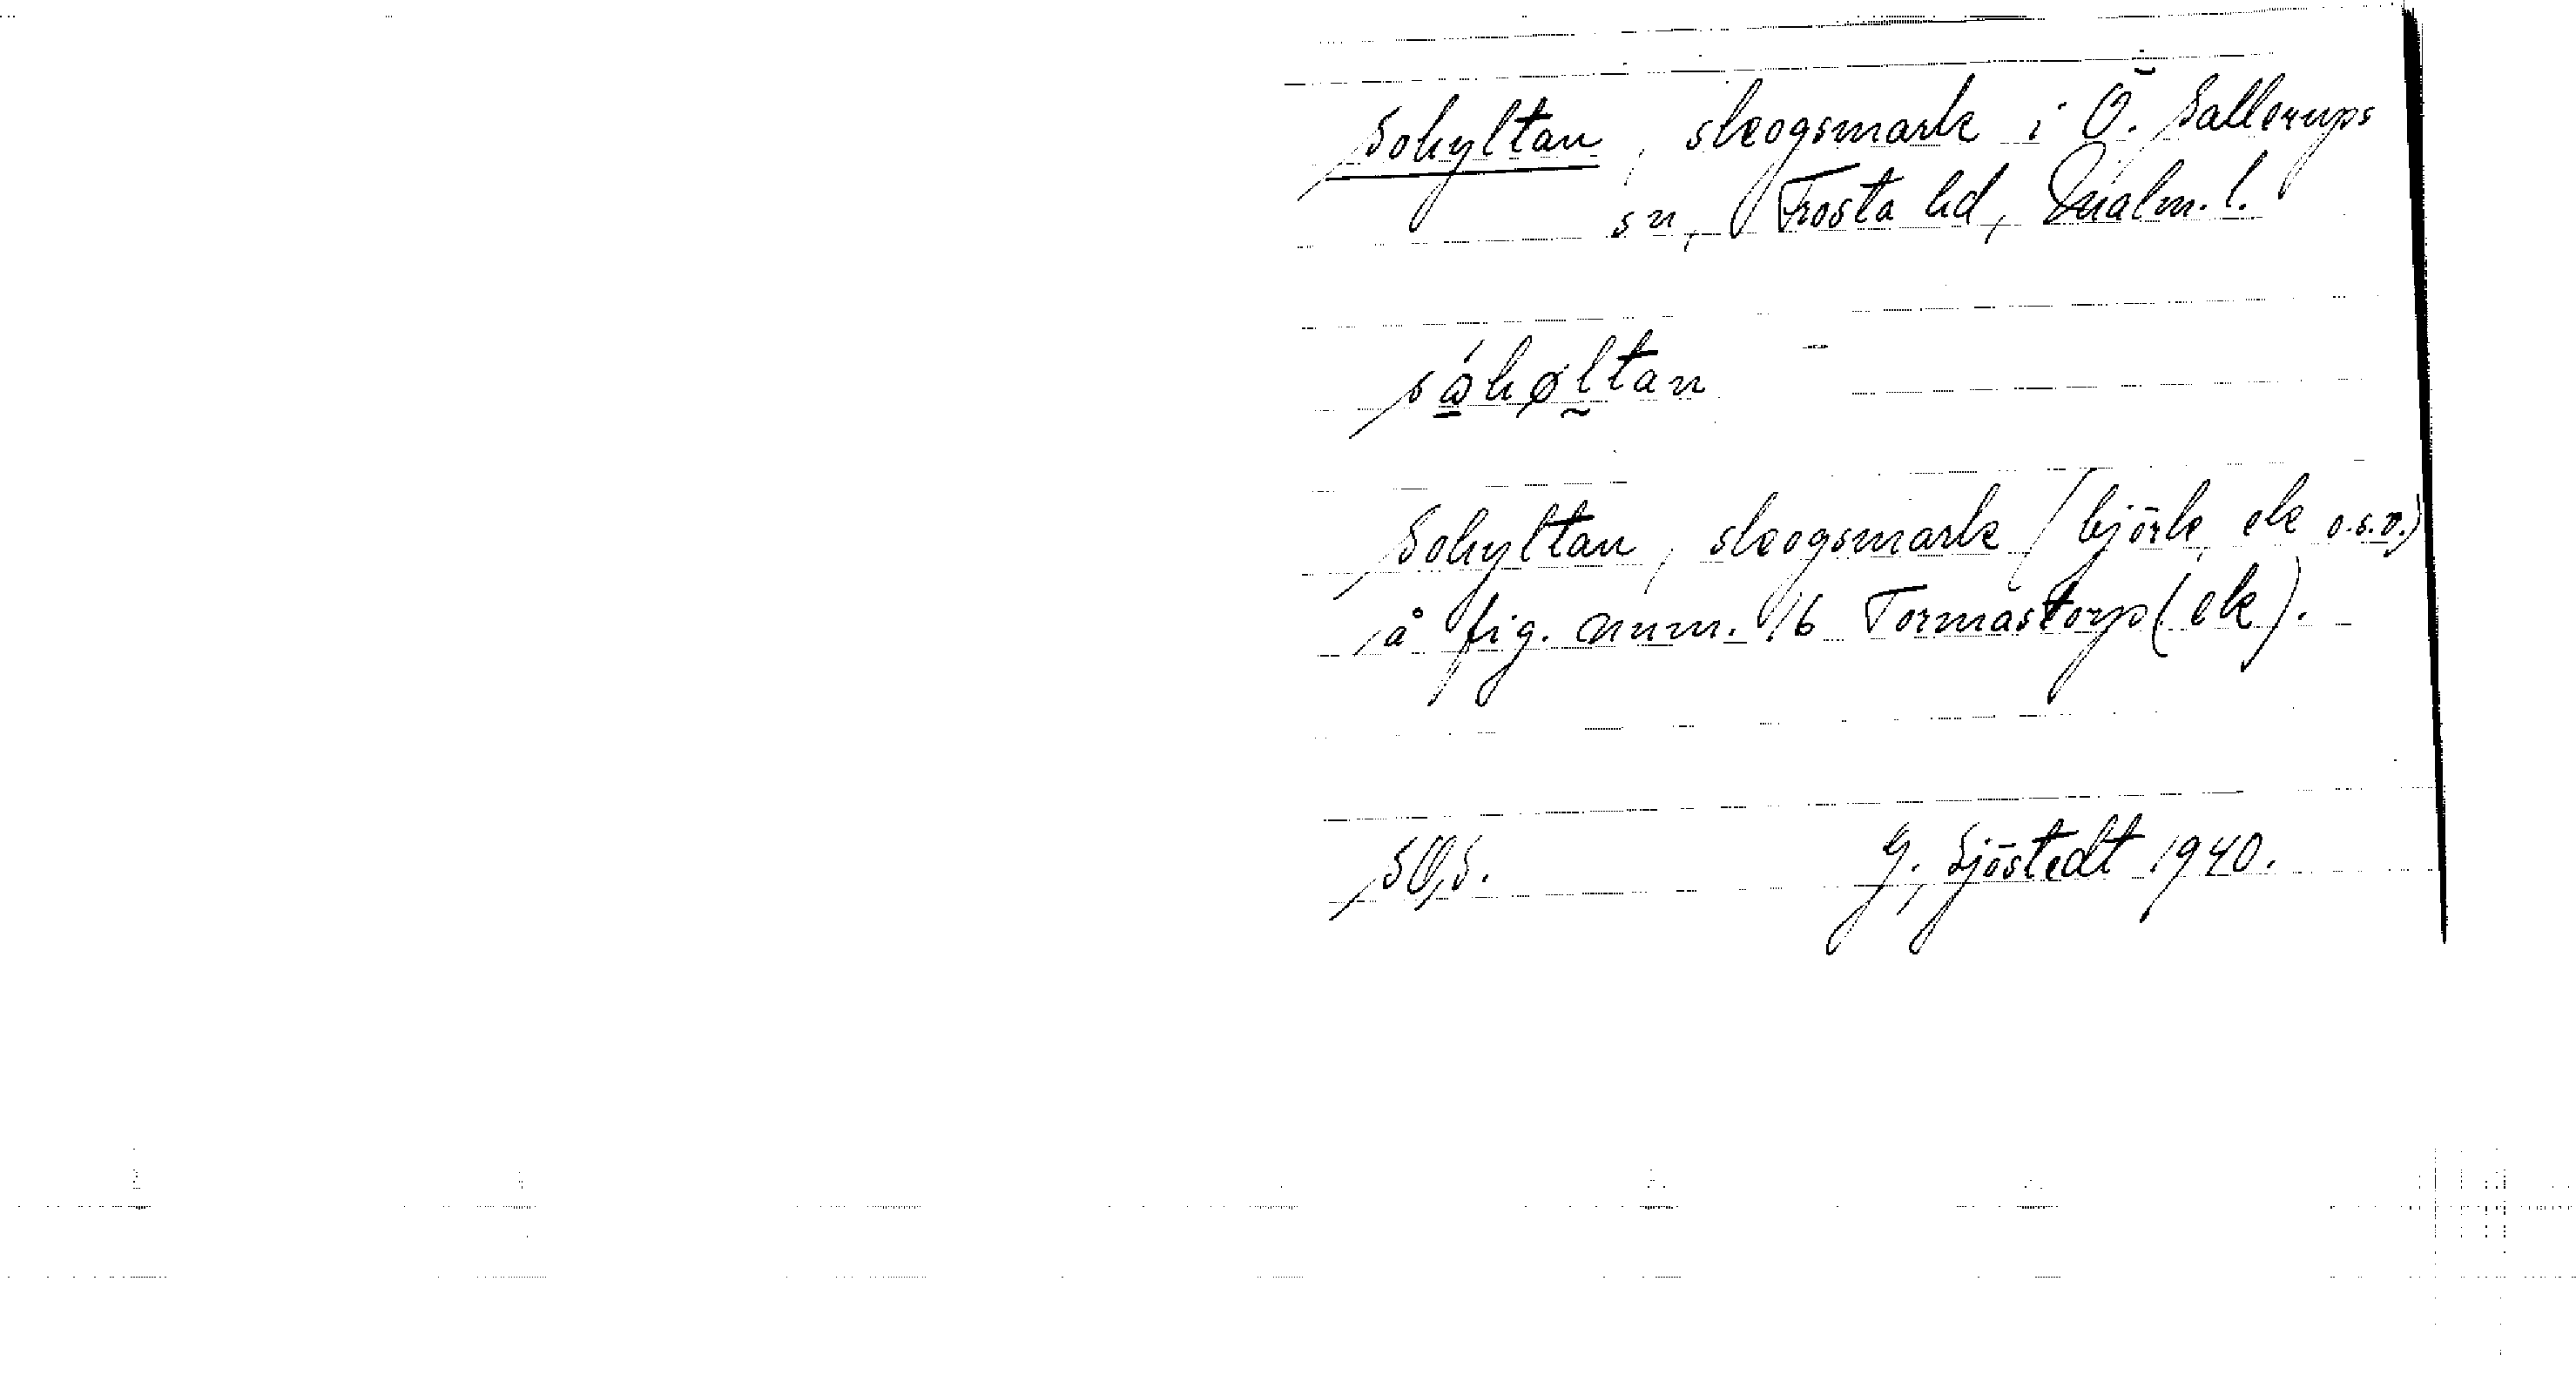 Sohyltan, skogsmark i Ö. Sallerups
sn, Frosta hd, Malm. l.
såhøltan
Sohyltan, skogsmark (björk, ek o.s.v.)
å fig. num. 16 Tormastorp (ek).
SOS. G. Sjöstedt 1940.